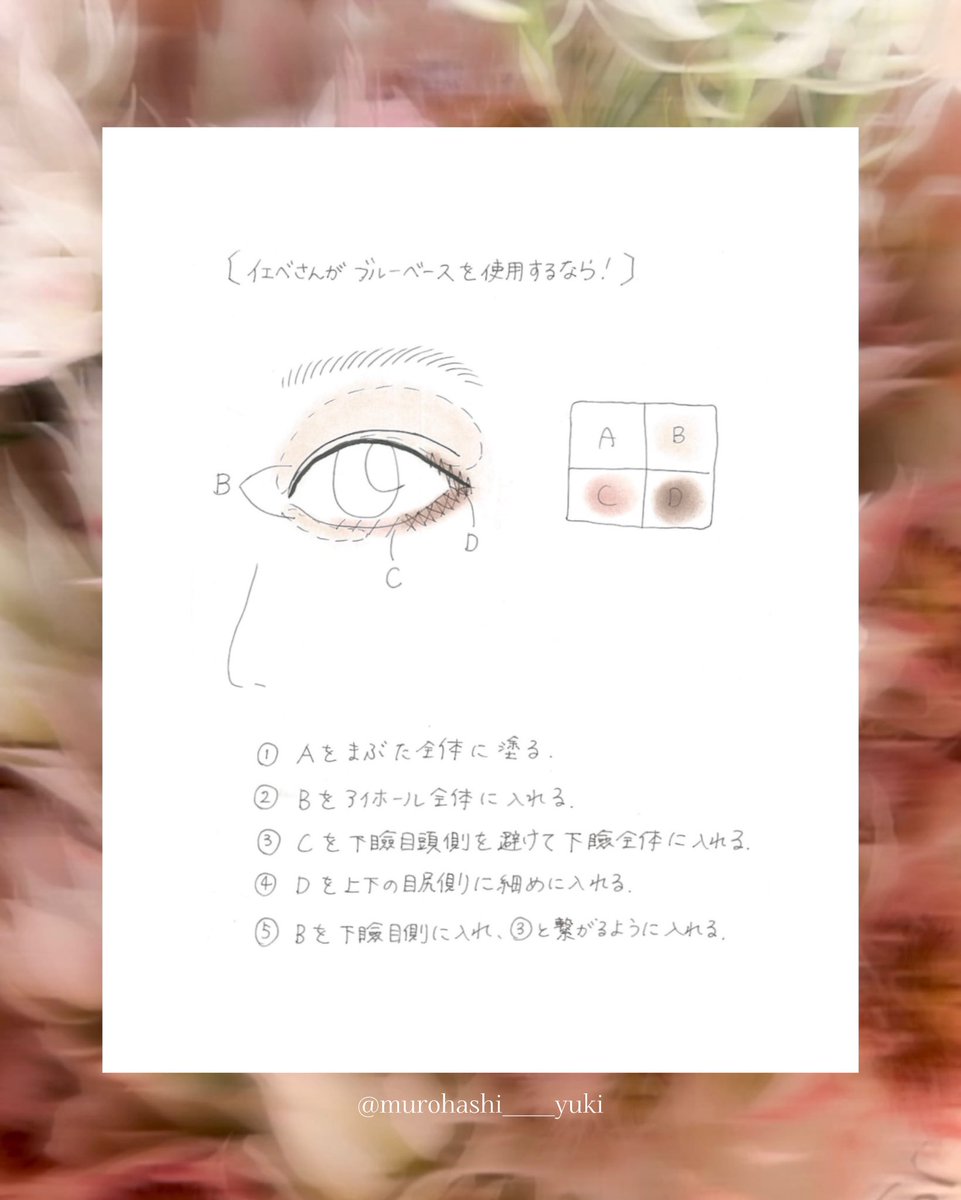 〔イエベさんが ブルーベースを使用するなら!〕
A
B
B
C
D
D
C
① Aをまぶた全体に塗る.
② Bをアイホール全体に入れる.
③ Cを下瞼目頭側を避けて下瞼全体に入れる.
④ Dを上下の目尻側りに細めに入れる.
⑤ Bを下瞼目側に入れ、③と繋がるように入れる.
@murohashi____yuki